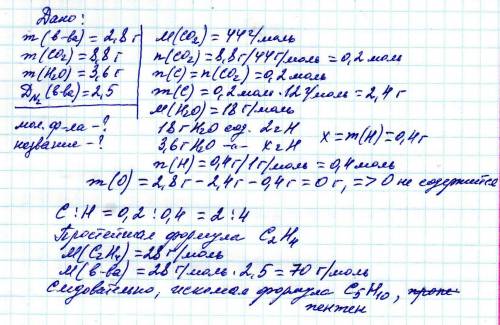 Дано:
m(в-ва) = 2,8 г
m(CO₂) = 8,8 г
m(H₂O) = 3,6 г
D_N₂(в-ва) = 2,5
мол. ф-ла - ?
название - ?
M(CO₂) = 44 г/моль
n(CO₂) = 8,8 г/44 г/моль = 0,2 мол
n(C) = n(CO₂) = 0,2 моль
m(C) = 0,2 моль · 12 г/моль = 2,4 г
M(H₂O) = 18 г/моль
18 г H₂O сод. 2 г H
3,6 г H₂O -"- x г H x = m(H) = 0,4 г
n(H) = 0,4 г/1 г/моль = 0,4 моль
m(O) = 2,8 г - 2,4 г - 0,4 г = 0 г, => O не содержится
C : H = 0,2 : 0,4 = 2 : 4
Простейшая формула C₂H₄
M(C₂H₄) = 28 г/моль
M(в-ва) = 28 г/моль · 2,5 = 70 г/моль
Следовательно, искомая формула C₅H₁₀,
пентен